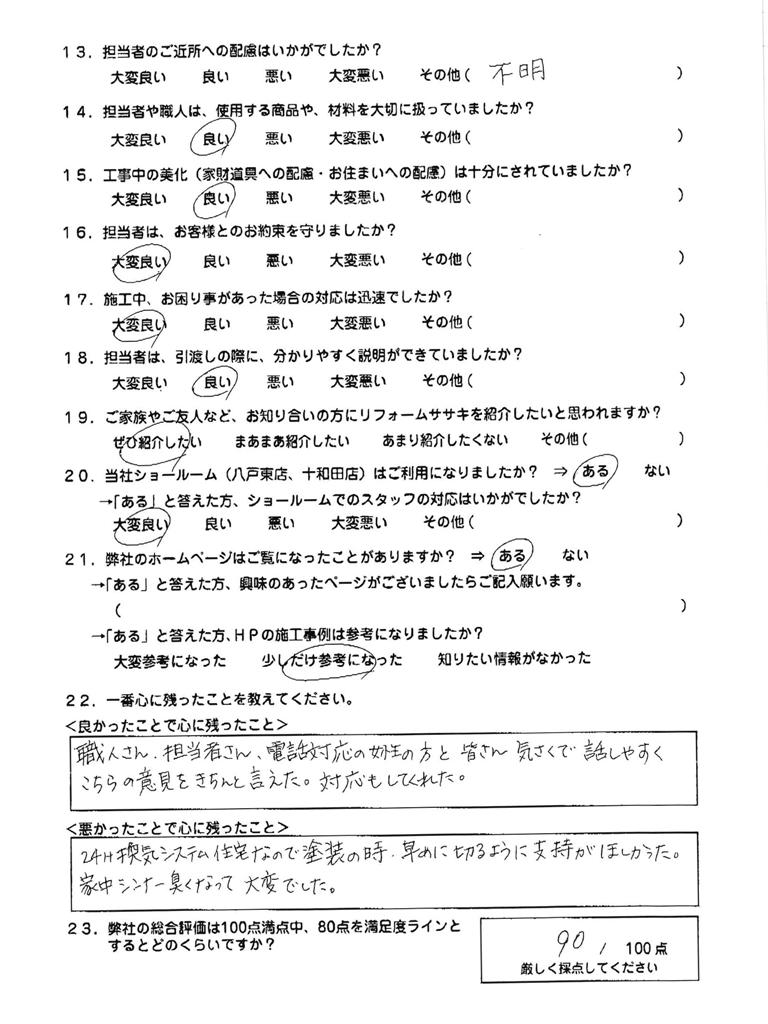 13．担当者のご近所への配慮はいかがでしたか？
大変良い　良い　悪い　大変悪い　その他（ 不明 ）
14．担当者や職人は、使用する商品や、材料を大切に扱っていましたか？
大変良い　良い　悪い　大変悪い　その他（　）
15．工事中の美化（家財道具への配慮・お住まいへの配慮）は十分にされていましたか？
大変良い　良い　悪い　大変悪い　その他（　）
16．担当者は、お客様とのお約束を守りましたか？
大変良い　良い　悪い　大変悪い　その他（　）
17．施工中、お困り事があった場合の対応は迅速でしたか？
大変良い　良い　悪い　大変悪い　その他（　）
18．担当者は、引渡しの際に、分かりやすく説明ができていましたか？
大変良い　良い　悪い　大変悪い　その他（　）
19．ご家族やご友人など、お知り合いの方にリフォームササキを紹介したいと思われますか？
ぜひ紹介したい　まあまあ紹介したい　あまり紹介したくない　その他（　）
20．当社ショールーム（八戸東店、十和田店）はご利用になりましたか？　⇒　ある　ない
→「ある」と答えた方、ショールームでのスタッフの対応はいかがでしたか？
大変良い　良い　悪い　大変悪い　その他（　）
21．弊社のホームページはご覧になったことがありますか？　⇒　ある　ない
→「ある」と答えた方、興味のあったページがございましたらご記入願います。
（　）
→「ある」と答えた方、ＨＰの施工事例は参考になりましたか？
大変参考になった　少しだけ参考になった　知りたい情報がなかった
22．一番心に残ったことを教えてください。
<良かったことで心に残ったこと>
職人さん、担当者さん、電話対応の女性の方と 皆さん 気さくで 話しやすく
こちらの意見をきちんと言えた。対応もしてくれた。
<悪かったことで心に残ったこと>
24H換気システム住宅なので塗装の時、早めに切るように支持がほしかった。
家中シンナー臭くなって 大変でした。
23．弊社の総合評価は100点満点中、80点を満足度ラインと
するとどのくらいですか？
90 / 100点
厳しく採点してください